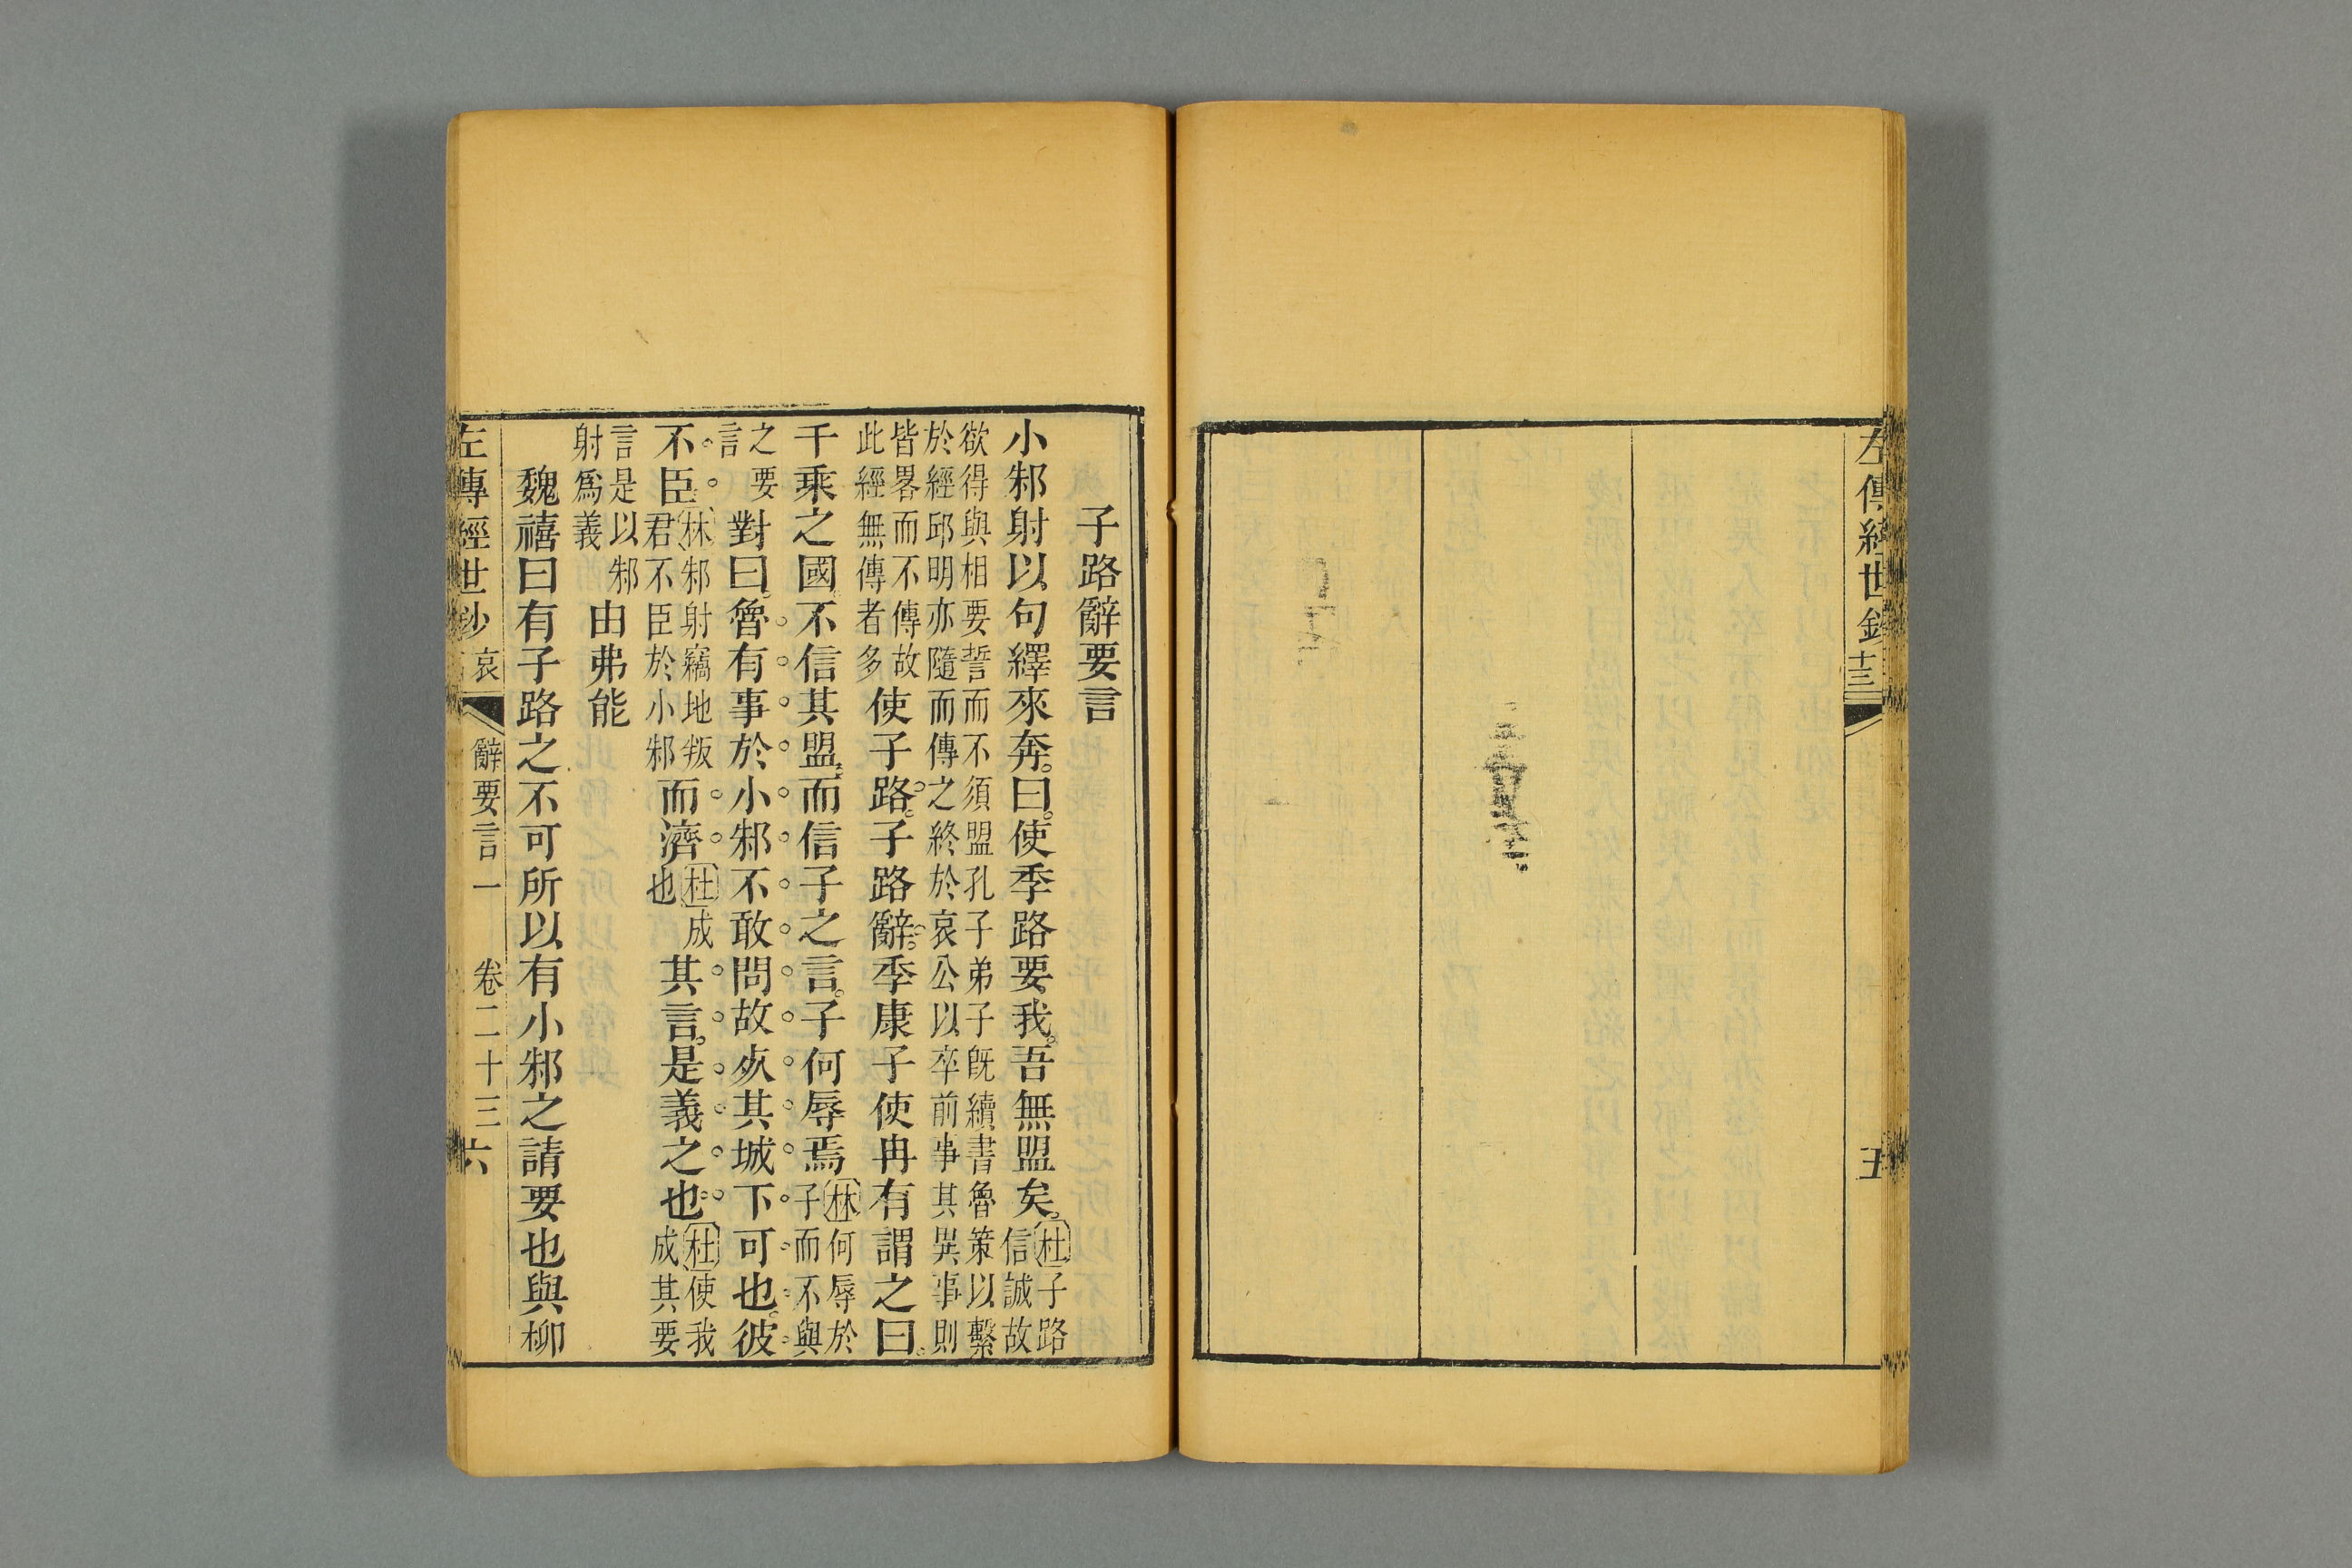 左傳經世鈔
十三
五
子路辭要言
小邾射以句繹來奔曰使季路要我吾無盟矣杜子路信誠故
欲得與相要誓而不須盟孔子弟子旣續書魯策以繫
於經邱明亦隨而傳之終於哀公以卒前事其異事則
皆畧而不傳故此經無傳者多使子路子路辭季康子使冉有謂之曰
千乘之國不信其盟而信子之言子何辱焉林何辱於子而不與
之要言對曰魯有事於小邾不敢問故㱔其城下可也彼
不臣林邾射竊地叛君不臣於小邾而濟杜成也其言是義之也杜使我成其要
言是以邾射爲義由弗能
魏禧曰有子路之不可所以有小邾之請要也與柳
左傳經世鈔 哀 辭要言一 卷二十三 六